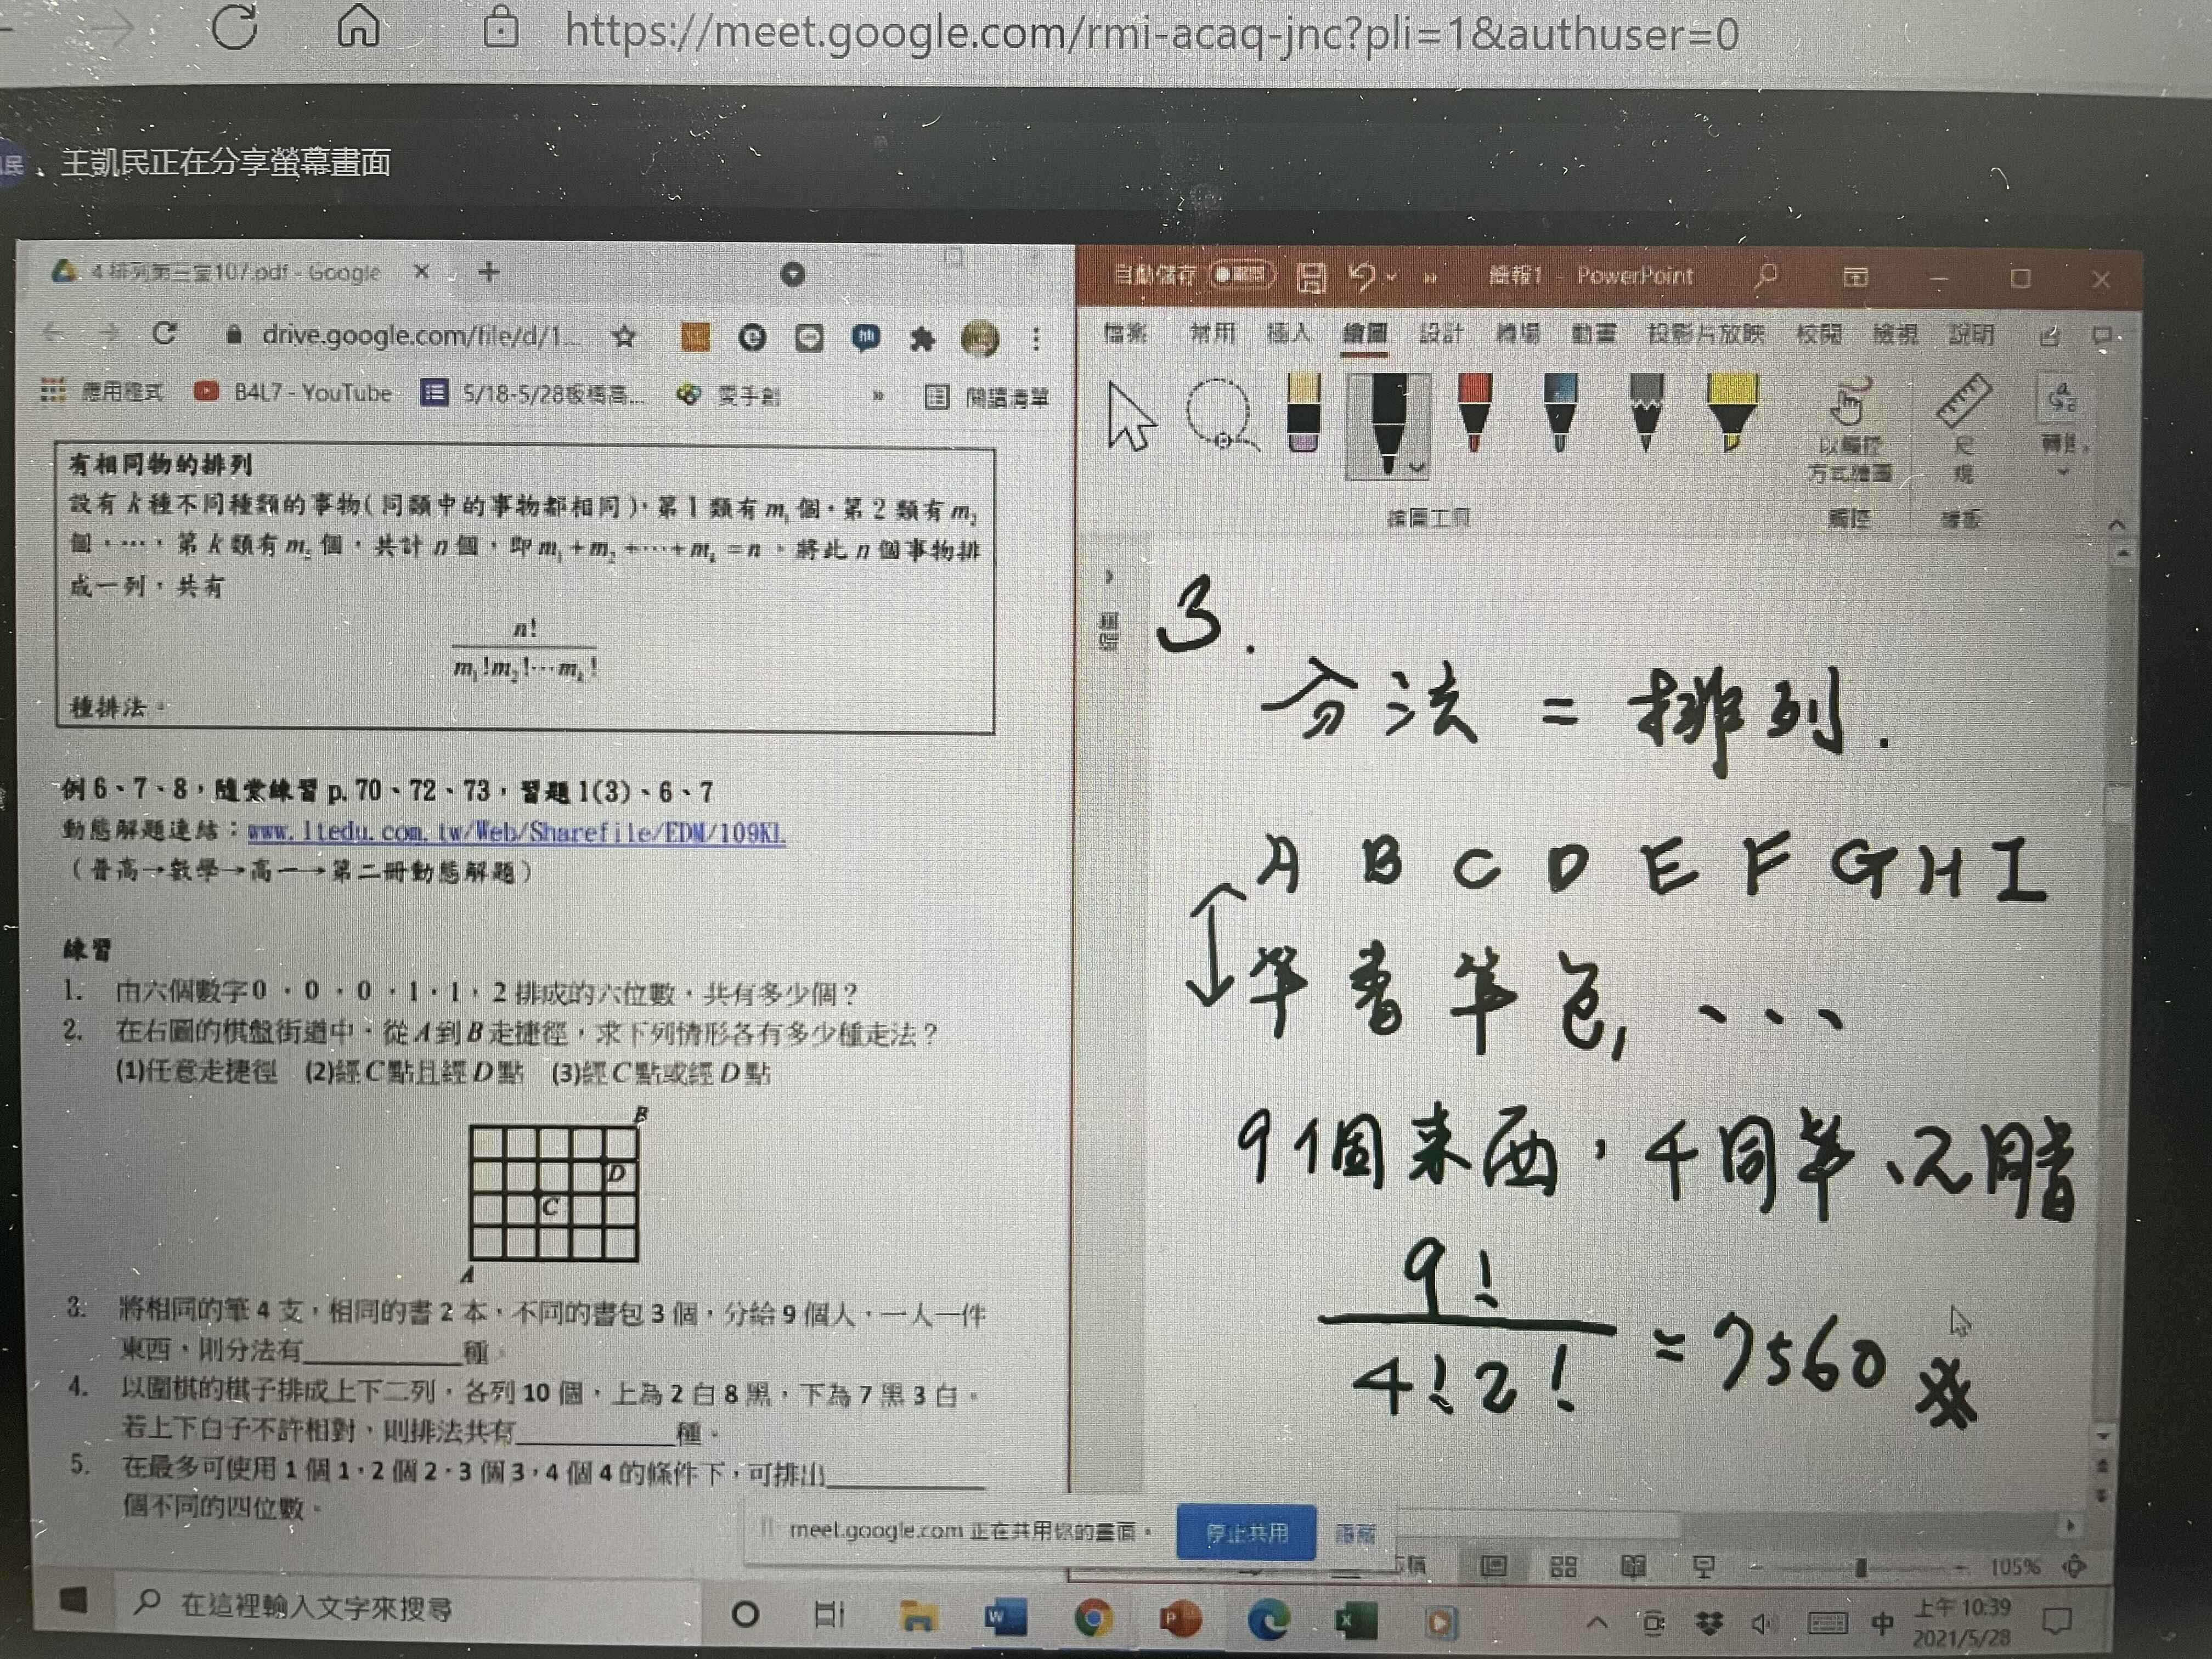 https://meet.google.com/rmi-acaq-jnc?pli=1&authuser=0
民、王凱民正在分享螢幕畫面
4 排列第三堂107.pdf - Google
drive.google.com/file/d/1...
應用程式 B4L7 - YouTube 5/18-5/28板橋高... 愛手創 » 閱讀清單
有相同物的排列
設有 k 種不同種類的事物(同類中的事物都相同),第 1 類有 m₁ 個,第 2 類有 m₂
個,⋯,第 k 類有 mₖ 個,共計 n 個,即 m₁ + m₂ +⋯+ mₖ = n。將此 n 個事物排
成一列,共有
n!
m₁!m₂!⋯mₖ!
種排法。
例 6、7、8,隨堂練習 p. 70、72、73,習題 1(3)、6、7
動態解題連結:www.ltedu.com.tw/Web/Sharefile/EDM/109KL
(普高→數學→高一→第二冊動態解題)
練習
1. 由六個數字 0,0,0,1,1,2 排成的六位數,共有多少個?
2. 在右圖的棋盤街道中,從 A 到 B 走捷徑,求下列情形各有多少種走法?
(1)任意走捷徑 (2)經 C 點且經 D 點 (3)經 C 點或經 D 點
B
D
C
A
3. 將相同的筆 4 支,相同的書 2 本,不同的書包 3 個,分給 9 個人,一人一件
東西,則分法有 種。
4. 以圍棋的棋子排成上下二列,各列 10 個,上為 2 白 8 黑,下為 7 黑 3 白。
若上下白子不許相對,則排法共有 種。
5. 在最多可使用 1 個 1,2 個 2,3 個 3,4 個 4 的條件下,可排出
個不同的四位數。
自動儲存 關閉 簡報1 - PowerPoint
檔案 常用 插入 繪圖 設計 轉場 動畫 投影片放映 校閱 檢視 說明
以觸控
方式繪圖
尺
規
繪圖工具 觸控
3.
分法 = 排列.
A B C D E F G H I
筆 書 筆 包, ...
9個東西,4同筆、2同書
9!
4!2!
= 7560
meet.google.com 正在共用你的畫面。 停止共用 隱藏
105%
在這裡輸入文字來搜尋
中
上午 10:39
2021/5/28